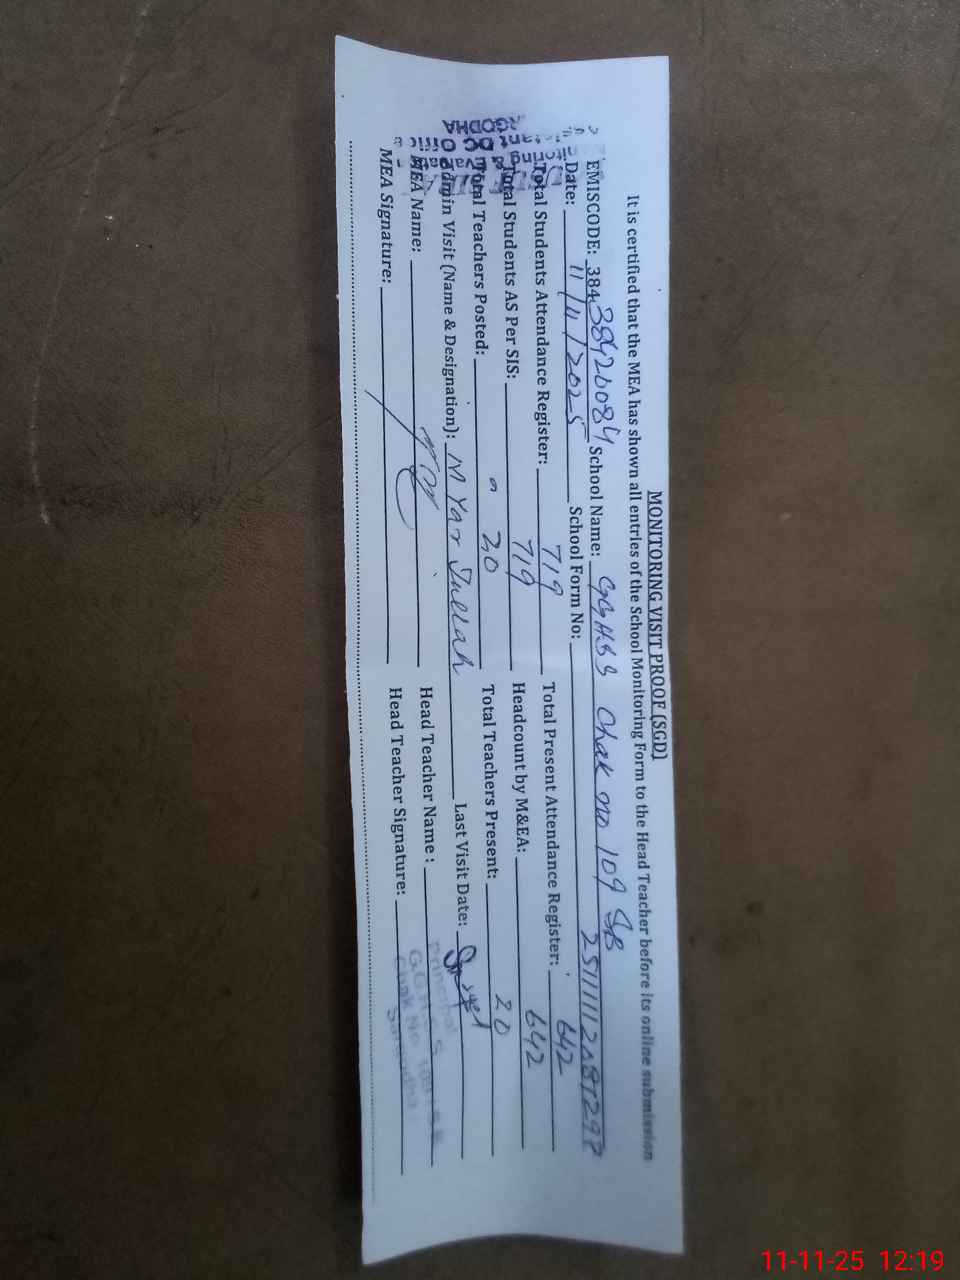 MONITORING VISIT PROOF (SGD)
It is certified that the MEA has shown all entries of the School Monitoring Form to the Head Teacher before its online submission
EMISCODE: 384 38420084 School Name: GGHSS Chak no 109 SB
Date: 11/11/2025 School Form No:
Total Students Attendance Register: 719 Total Present Attendance Register: 642
Total Students AS Per SIS: 719 Headcount by M&EA: 642
Total Teachers Posted: 20 Total Teachers Present: 20
Admin Visit (Name & Designation): M Yar Last Visit Date:
MEA Name: Head Teacher Name :
MEA Signature: Head Teacher Signature:
Principal
Chak No
Sargodha
11-11-25 12:19